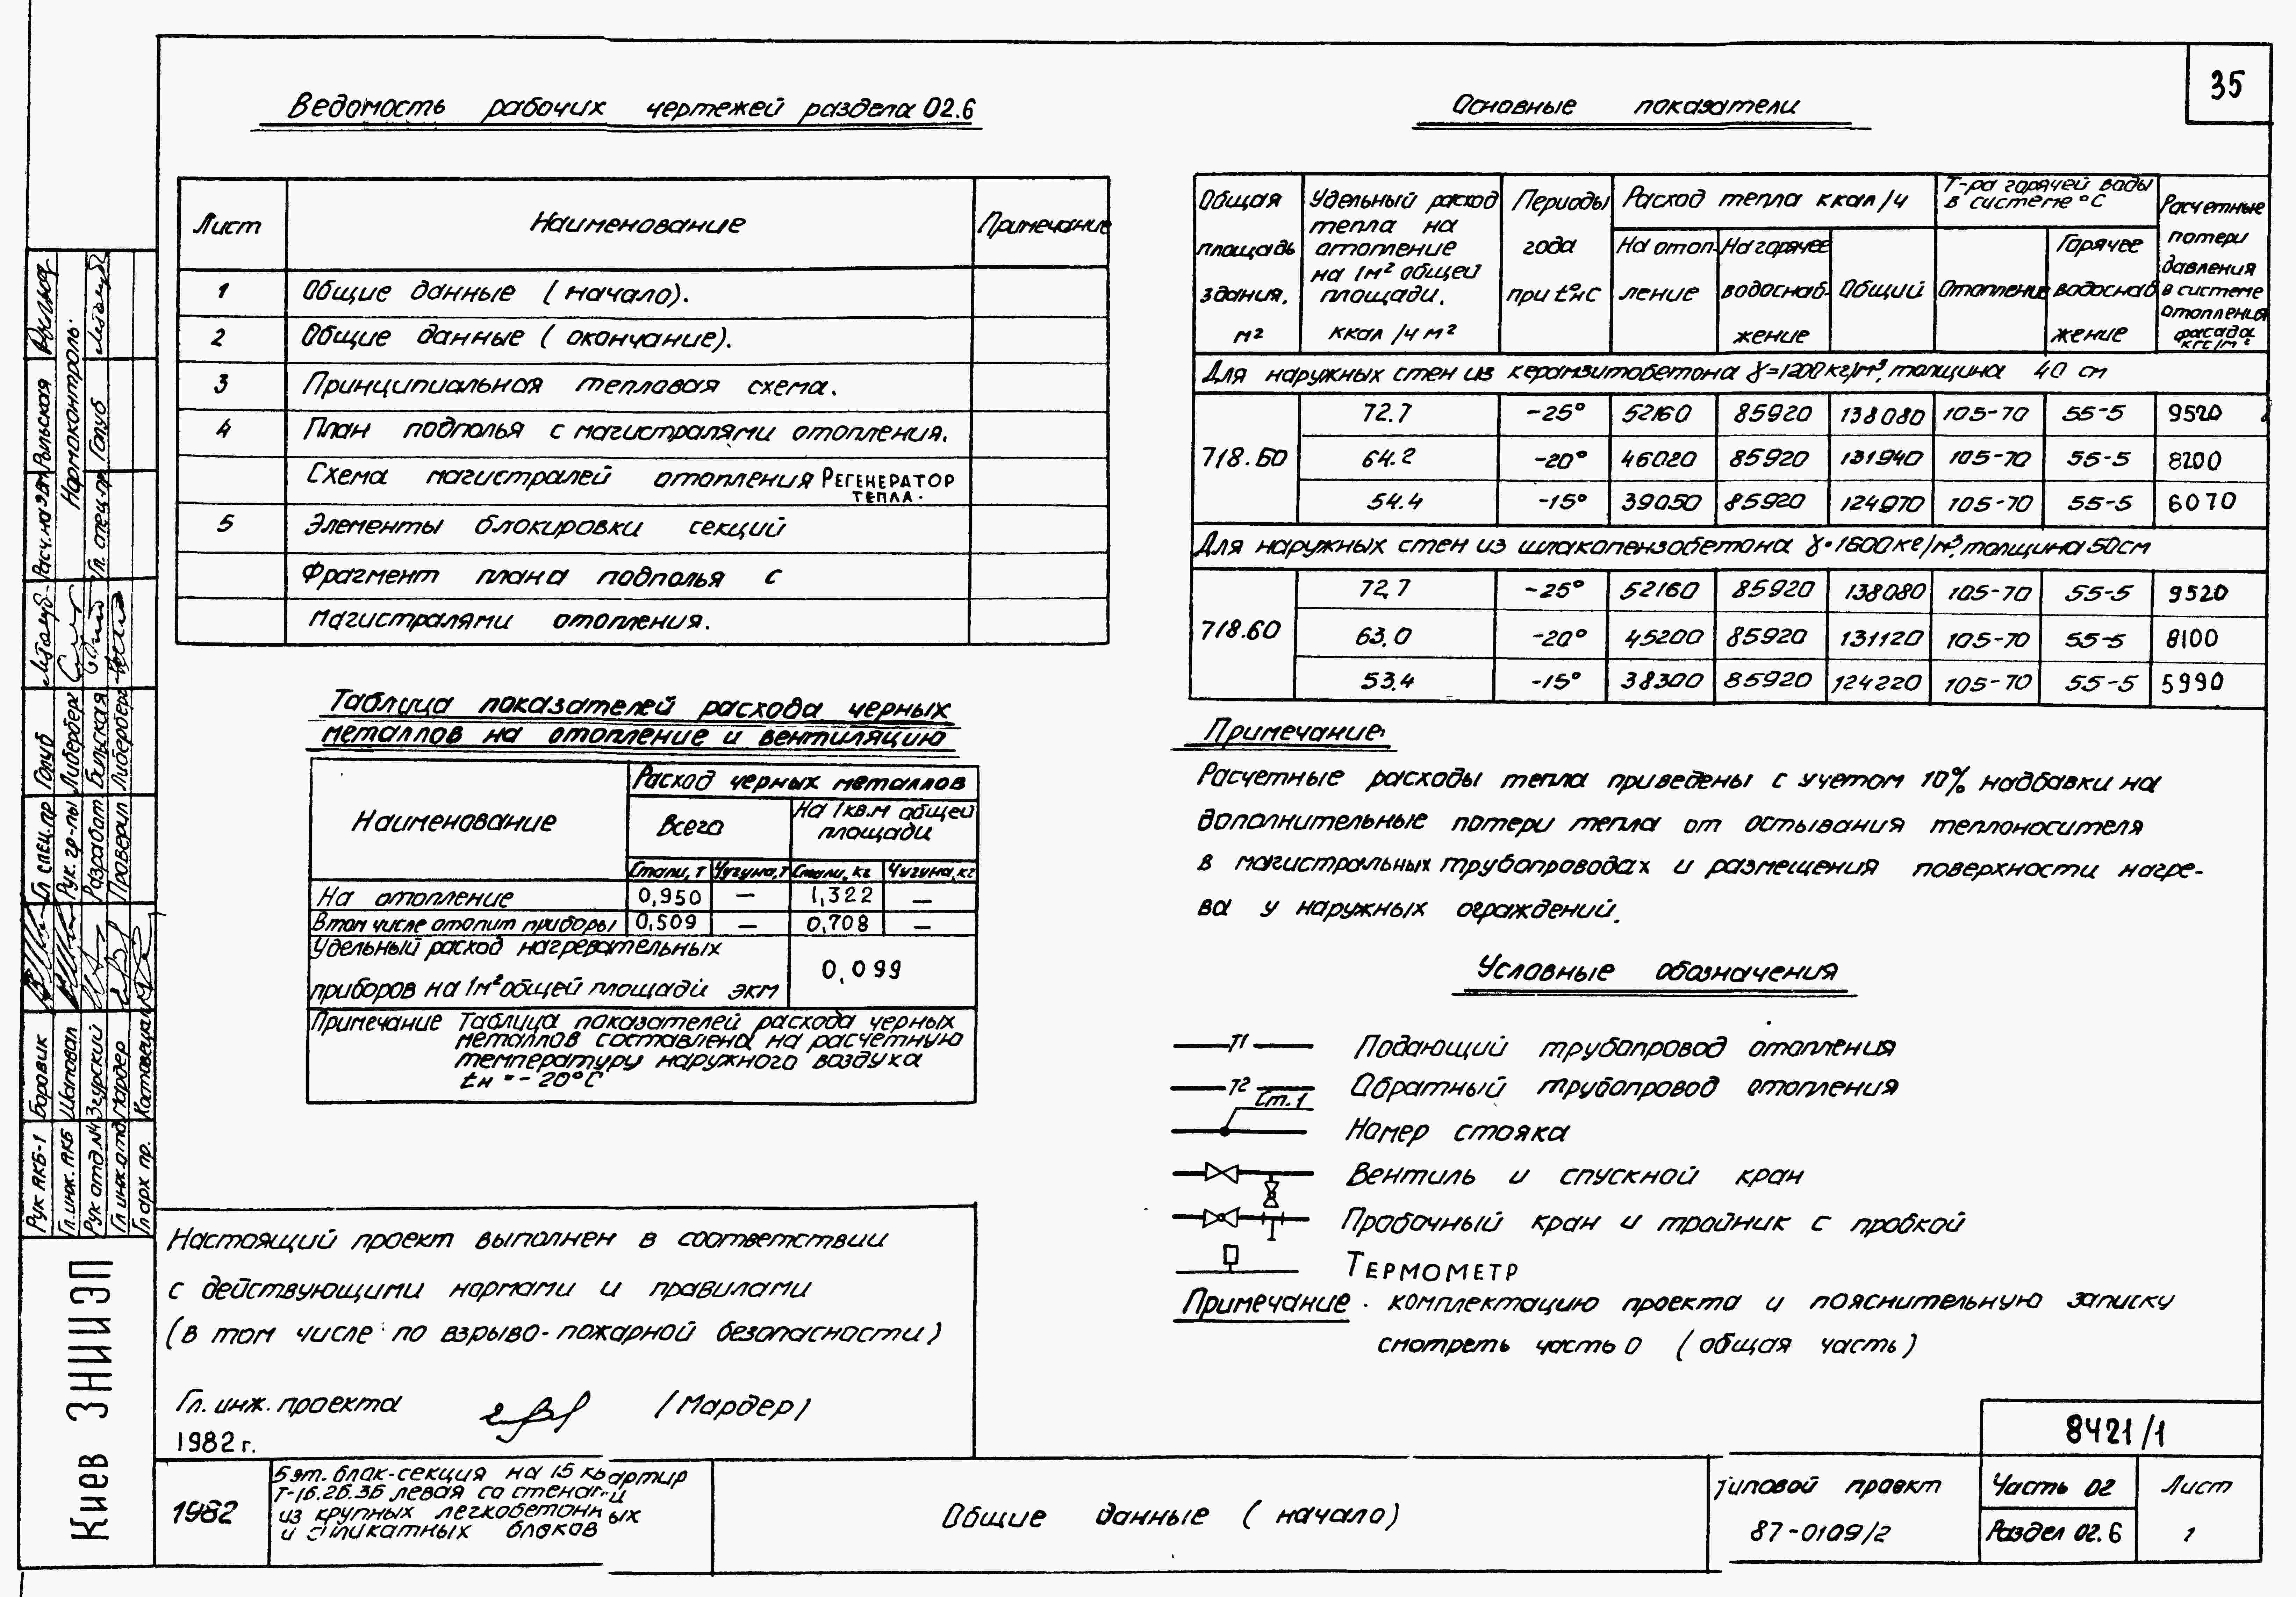 35
Ведомость рабочих чертежей раздела 02.6
Лист Наименование Примечание
1 Общие данные (начало).
2 Общие данные (окончание).
3 Принципиальная тепловая схема.
4 План подполья с магистралями отопления.
Схема магистралей отопления Регенератор тепла.
5 Элементы блокировки секций
Фрагмент плана подполья с
магистралями отопления.
Таблица показателей расхода черных
металлов на отопление и вентиляцию
Наименование Расход черных металлов
Всего На 1 кв.м общей площади
Стали, т Чугуна, т Стали, кг Чугуна, кг
На отопление 0,950 — 1,322 —
В том числе отопит приборы 0,509 — 0,708 —
Удельный расход нагревательных
приборов на 1м² общей площади экм 0,099
Примечание Таблица показателей расхода черных
металлов составлена на расчетную
температуру наружного воздуха
tн = - 20°С
Настоящий проект выполнен в соответствии
с действующими нормами и правилами
(в том числе по взрыво-пожарной безопасности)
Гл. инж. проекта (Мардер)
1982 г.
Основные показатели
Общая площадь здания, м²
Удельный расход тепла на отопление на 1м² общей площади. ккал/ч м²
Периоды года при t°н С
Расход тепла ккал/ч
На отопление
На горячее водоснабжение
Общий
Т-ра горячей воды в системе °С
Отопление
Горячее водоснабжение
Расчетные потери давления в системе отопления фасада кгс/м²
Для наружных стен из керамзитобетона γ=1200кг/м³, толщина 40 см
718.60 72.7 -25° 52160 85920 138080 105-70 55-5 9520
64.2 -20° 46020 85920 131940 105-70 55-5 8200
54.4 -15° 39050 85920 124970 105-70 55-5 6070
Для наружных стен из шлакопензобетона γ=1600кг/м³, толщина 50см
718.60 72.7 -25° 52160 85920 138080 105-70 55-5 9520
63.0 -20° 45200 85920 131120 105-70 55-5 8100
53.4 -15° 38300 85920 124220 105-70 55-5 5990
Примечание:
Расчетные расходы тепла приведены с учетом 10% надбавки на
дополнительные потери тепла от остывания теплоносителя
в магистральных трубопроводах и размещения поверхности нагре-
ва у наружных ограждений.
Условные обозначения
Т1 Подающий трубопровод отопления
Т2 Обратный трубопровод отопления
Ст.1 Номер стояка
Вентиль и спускной кран
Пробочный кран и тройник с пробкой
Термометр
Примечание. комплектацию проекта и пояснительную записку
смотреть часть 0 (общая часть)
8421/1
1982
5 эт. блок-секция на 15 квартир
Т-1б.2б.3б левая со стенами
из крупных легкобетонных
и силикатных блоков
Общие данные (начало)
Типовой проект
87-0109/2
Часть 02
Раздел 02.6
Лист
1
Киев ЗНИИЭП
Рук АКБ-1 Боровик
Гл. инж. АКБ Шаповал
Рук отд. №4 Згурский
Гл инж. отд. Мардер
Гл арх пр.
Гл спец. пр Голуб
Рук. гр-пы Либерберг
Разработ. Бильская
Проверил Либерберг
Нормоконтроль.
Гл. спец. пр. Голуб